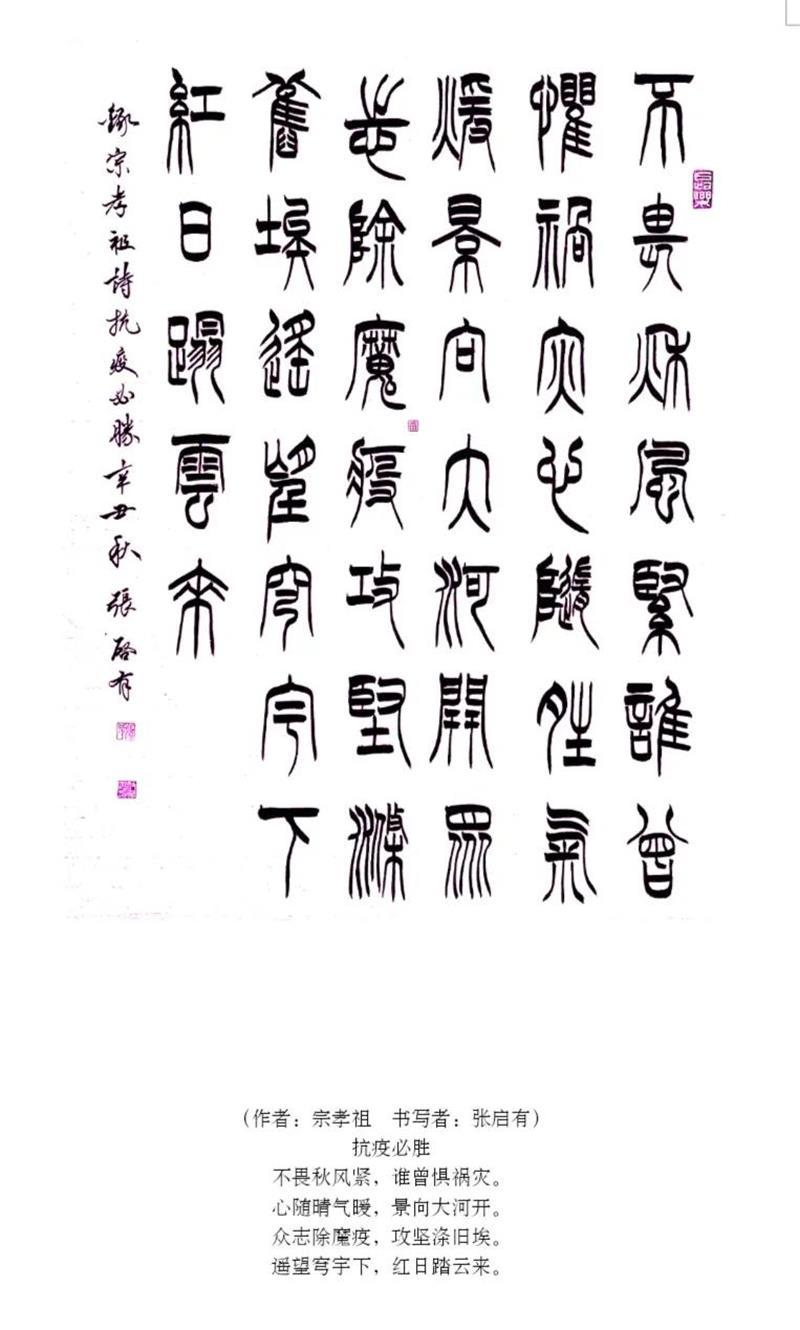 不畏秌風緊誰曾
懼禍灾心隨夝氣
煖景向大河開眾
志除魔疫攻堅滌
舊埃遙望穹宇下
紅日蹋雲來
錄宗孝祖詩抗疫必勝辛丑秋張啓有
（作者：宗孝祖 书写者：张启有）
抗疫必胜
不畏秋风紧，谁曾惧祸灾。
心随晴气暖，景向大河开。
众志除魔疫，攻坚涤旧埃。
遥望穹宇下，红日踏云来。